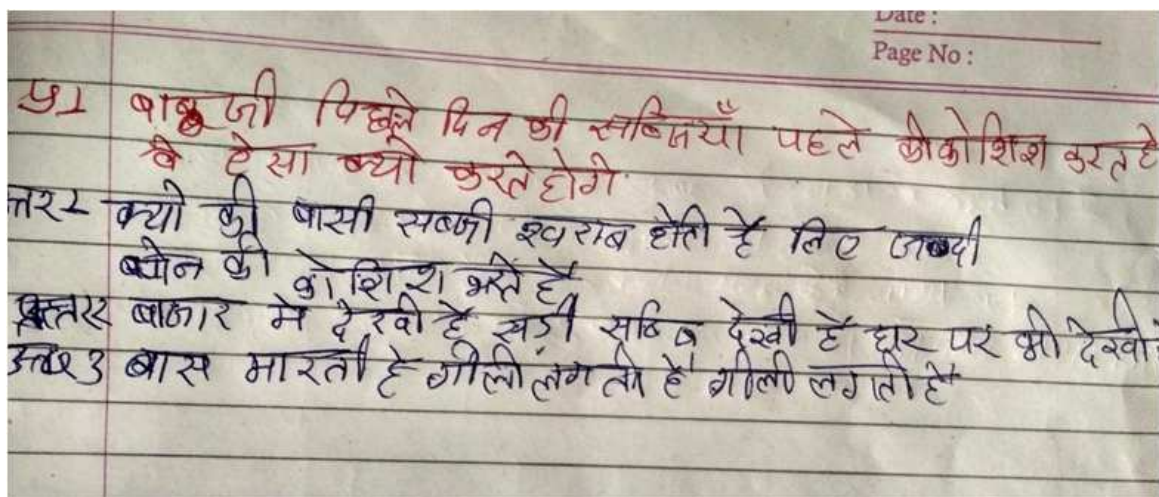 Date :
Page No :
प्र1 बाबू जी पिछले दिन की सब्जियाँ पहले की कोशिश करत है
वे ऐसा क्यो करते होगे
त्तर2 क्यो की बासी सब्जी खराब होती है लिए जल्दी
की कोशिश करते है
बाजार मे देखी है सड़ी देखी है घर पर भी देखी
उत्तर3 बास मारती है गीली लगती है गीली लगती है